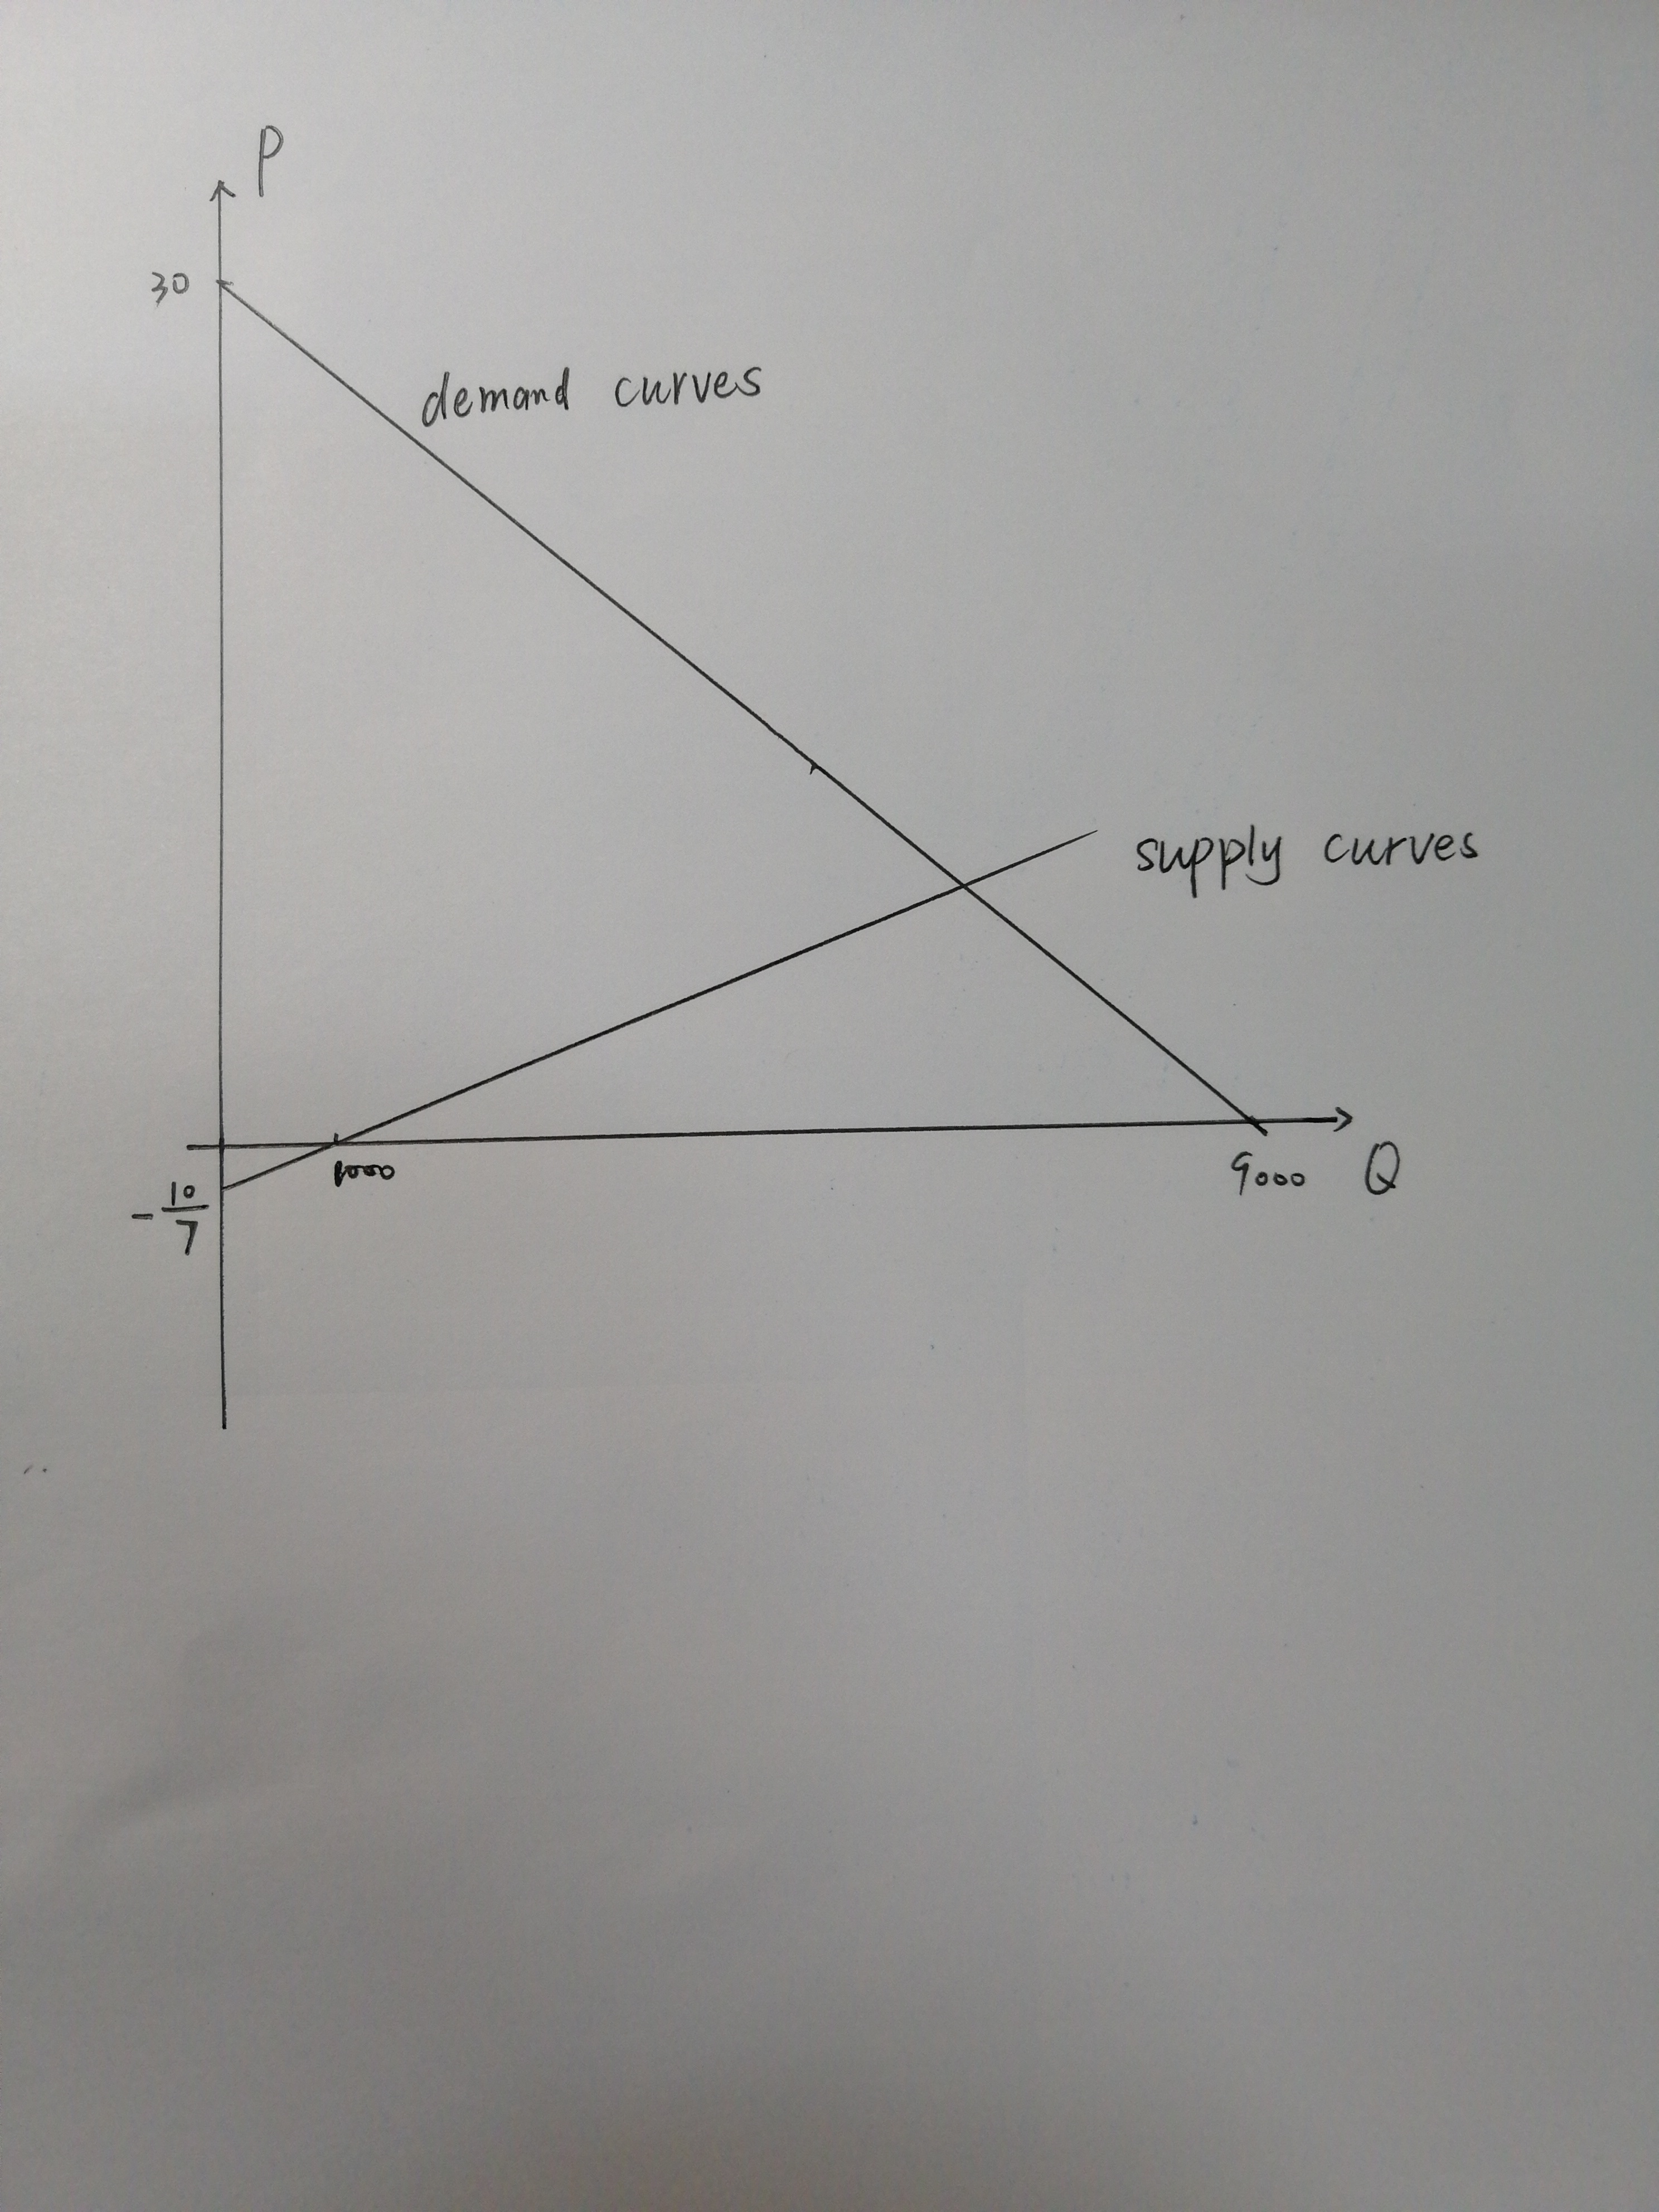 P
30
demand curves
supply curves
1000
9000 Q
- 10/7